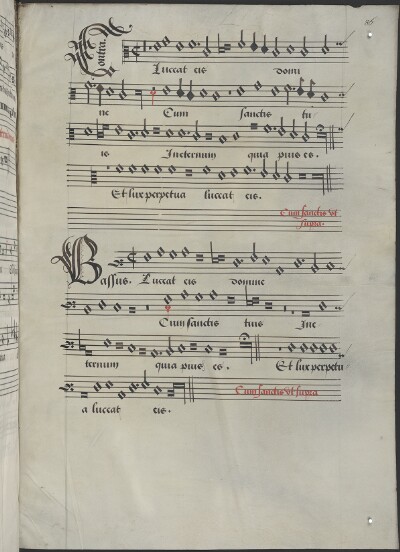 Contra
Luceat eis domi
ne Cum sanctis tu
is Ineternum quia pius es.
Et lux perpetua luceat eis.
Cum sanctis vt
supra.
Bassus. Luceat eis domine
Cum sanctis tuis Ine
ternum quia pius es. Et lux perpetu
a luceat eis.
Cum sanctis vt supra